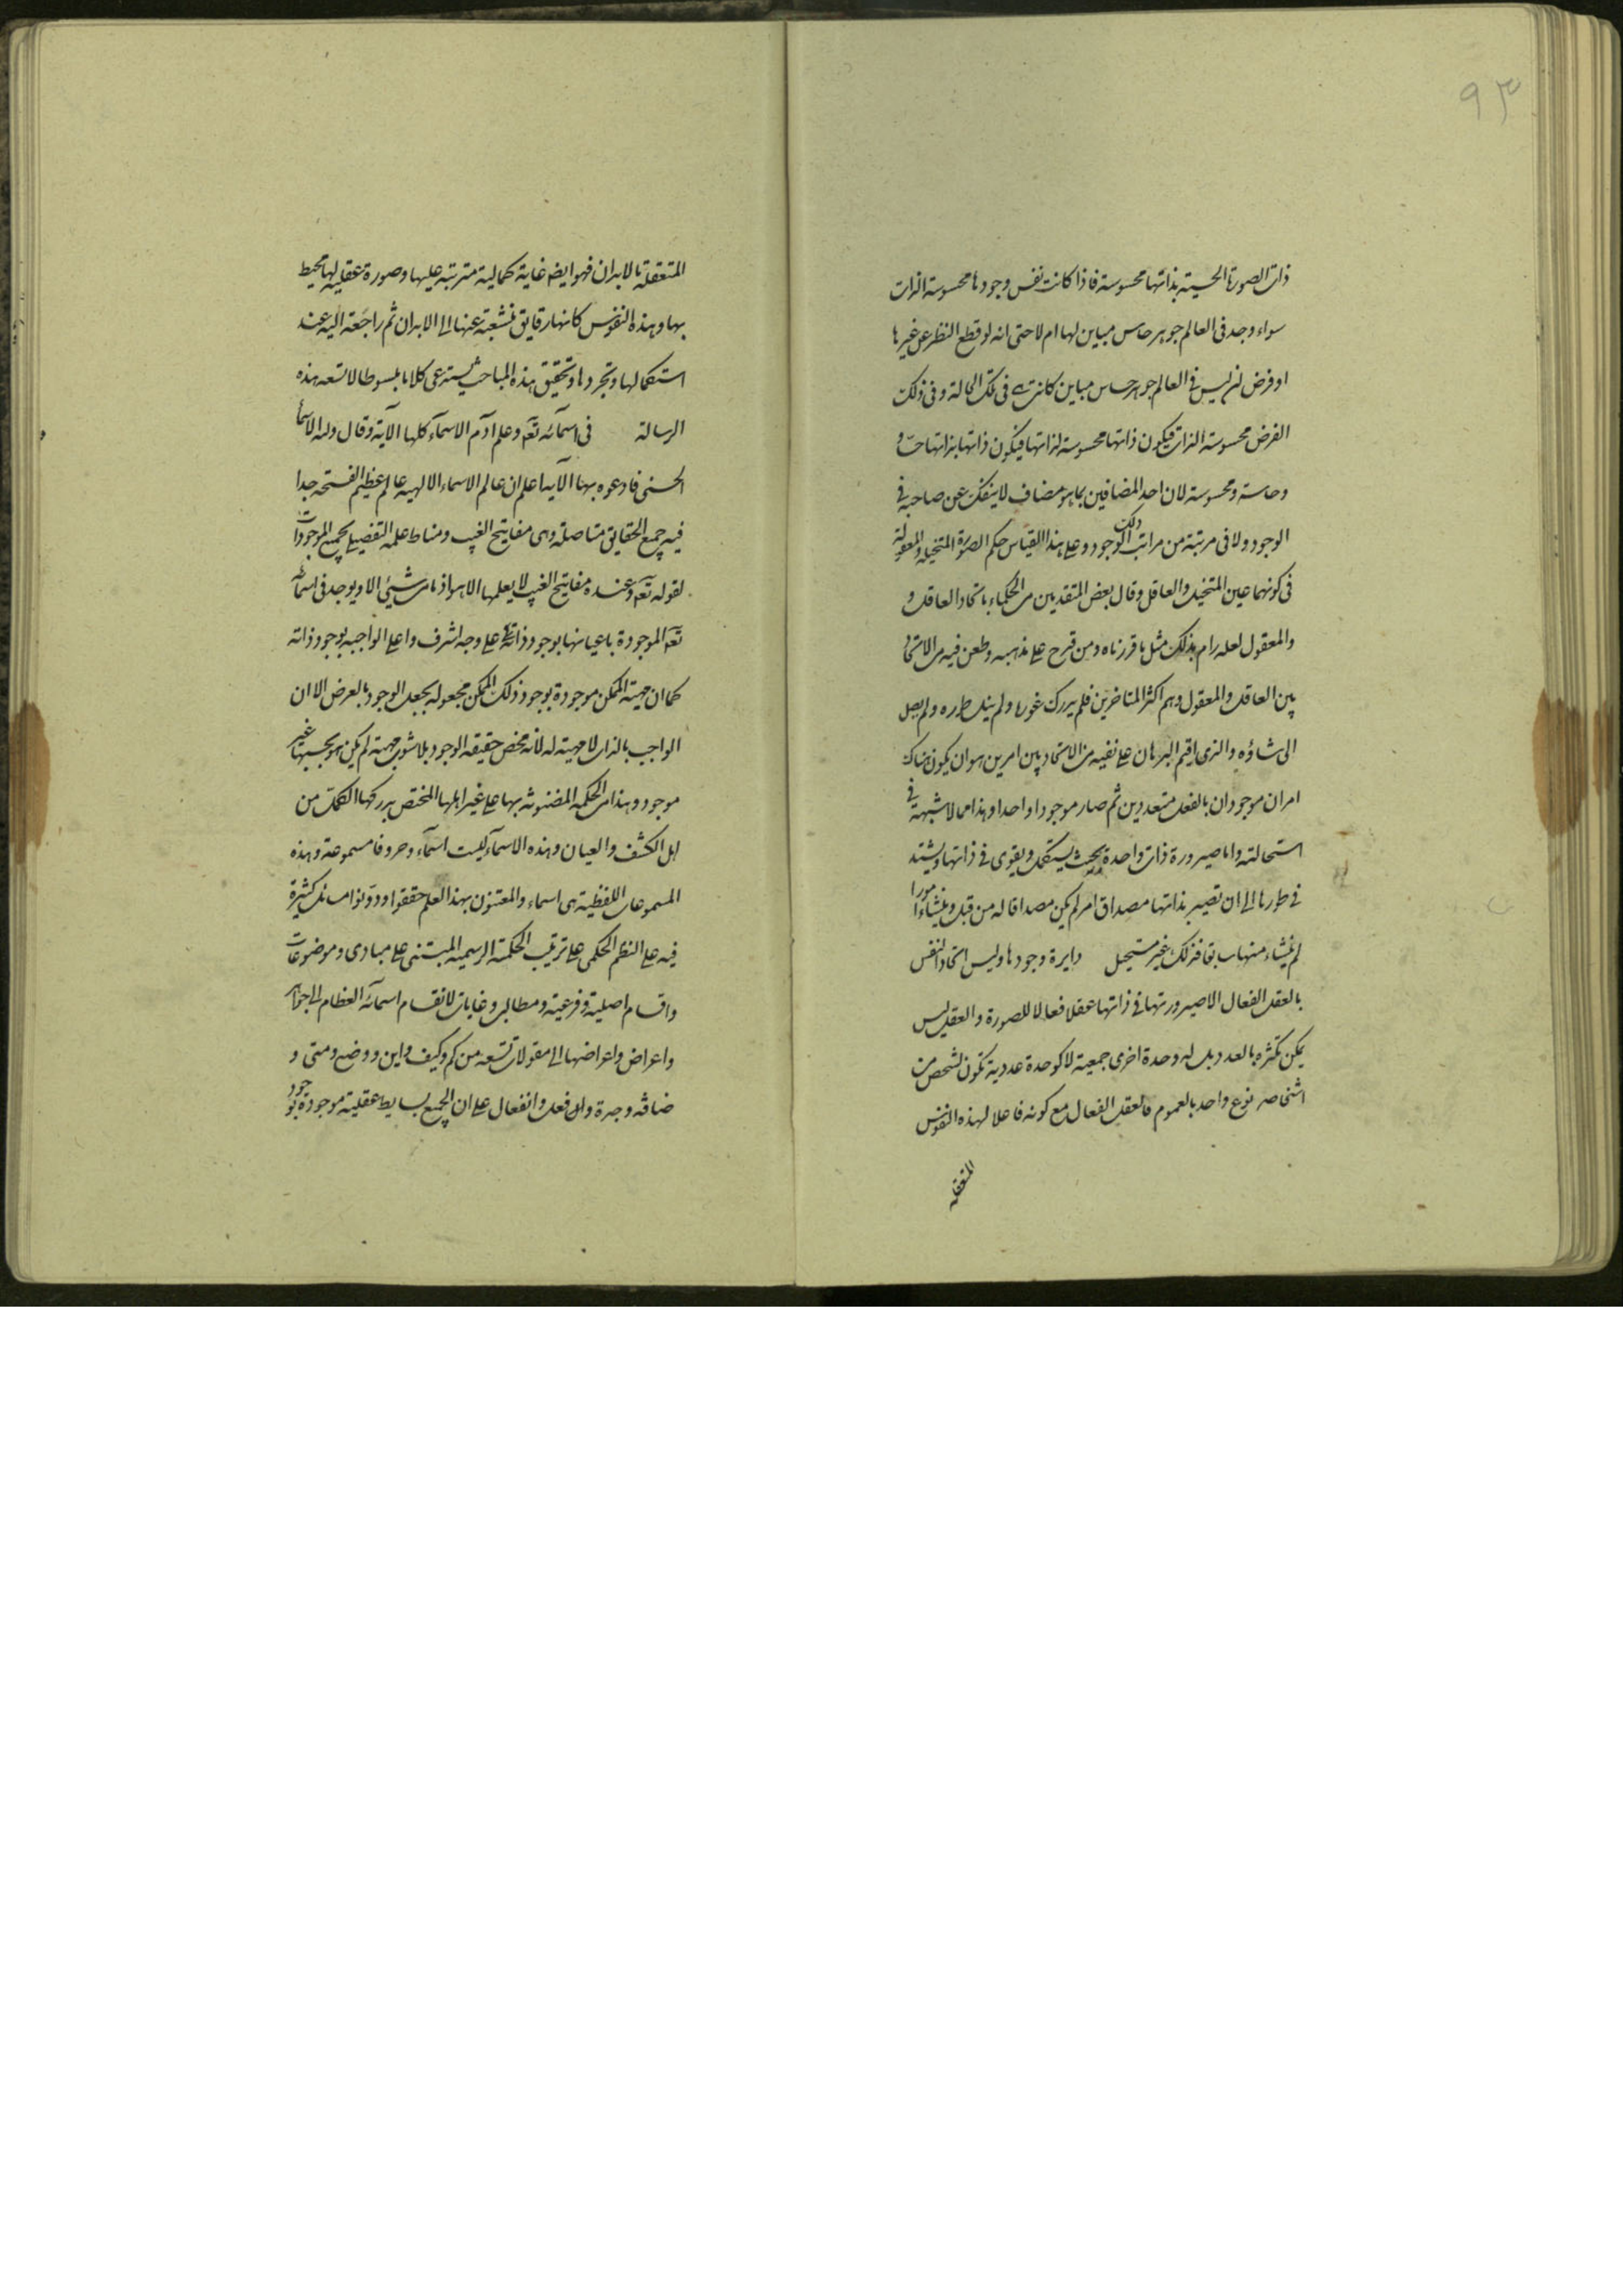 ٩٣
ذات الصورة الحسية بذاتها محسوسة فاذا كانت نفس وجودها محسوسة الذات
سواء وجد فى العالم جوهر حاس مباين لها ام لا حتى انه لو قطع النظر عن غيرها
او فرض ان ليس فى العالم جوهر حساس مباين كانت هى فى تلك الحالة وفى ذلك
الفرض محسوسة الذات فيكون ذاتها محسوسة لذاتها فيكون ذاتها بذاتها حسا و
وحاسة ومحسوسة لان احد المضافين بما هو مضاف لا ينفك عن صاحبه فى
الوجود ولا فى مرتبة من مراتب ذلك الوجود وعلى هذا القياس حكم الصورة المتخيلة والمعقولة
فى كونهما عين المتخيل والعاقل وقال بعض المتقدمين من الحكماء باتحاد العاقل و
والمعقول لعله رام بذلك مثل ما قررناه ومن قدح على مذهبه وطعن فيه من الاتحاد
بين العاقل والمعقول وهم اكثر المتاخرين فلم يدرك غوره ولم ينل طوره ولم يصل
الى شاؤه والذى اقيم البرهان على نفيه من الاتحاد بين امرين هو ان يكون هناك
امران موجودان بالفعل متعددين ثم صار موجودا واحدا وهذا مما لا شبهة فى
استحالته واما صيرورة ذات واحدة بحيث يستكمل ويقوى فى ذاتها ويشتد
فى طورها الى ان تصير بذاتها مصداق امر لم يكن مصداقا له من قبل وينشاء امورا
لم ينشاء منها سابقا فذلك غير مستحيل دايرة وجودها وليس اتحاد النفس
بالعقل الفعال الا صيرورتها فى ذاتها عقلا فعالا للصورة والعقل ليس
يمكن تكثره بالعدد بل له وحدة اخرى جمعية لا كوحدة عددية تكون لشخص من
اشخاص نوع واحد بالعموم فالعقل الفعال مع كونه فاعلا لهذه النفوس
المتعقلة
المتعقلة بالابدان فهو ايضا غاية كمالية مترتبة عليها وصورة عقلية لها محيط
بها وهذه النفوس كانها رقايق منشعبة عنها الى الابدان ثم راجعة اليه عند
استكمالها وتجردها وتحقيق هذه المباحث يستدعى كلاما مبسوطا لا تسعه هذه
الرسالة فى اسمائه تعه وعلم آدم الاسماء كلها الآية وقال ولله الاسما
الحسنى فادعوه بها الآية اعلم ان عالم الاسماء الالهية عالم عظيم الفسحة جدا
فيه جميع الحقايق متاصلة وهى مفاتيح الغيب ومناط علمه التفصيلى بجميع الموجودات
لقوله تعه وعنده مفاتيح الغيب لا يعلمها الا هو اذ ما من شيئ الا ويوجد فى اسمائه
تعه الموجودة باعيانها بوجود ذاته على وجه اشرف واعلى الواجبه بوجود ذاته
كما ان مهية الممكن موجودة بوجود ذلك الممكن مجعوله بجعل الوجود بالعرض الا ان
الواجب بالذات لا مهية له لانه محض حقيقه الوجود بلا شوب مهية لم يكن هو بحسبها غير
موجود وهذا من الحكمه المضنونة بها على غير اهلها المختص بدركها الكمل من
اهل الكشف والعيان وهذه الاسماء ليست اسماء وحروفا مسموعة وهذه
المسموعات اللفظية هى اسماء والمعتنون بهذا العلم حققوا ودونوا مسائل كثيرة
فيه على النظم الحكمى على ترتيب الحكمة الرسميه المبتنى على مبادى وموضوعات
واقسام اصلية وفرعية ومطالب وغايات لانقسام اسمائه العظام الى جواهر
واعراض واعراضها الى مقولات تسعه من كم وكيف واين ووضع ومتى و
ضافه وجدة وان فعل وانفعال على ان الجميع بسايط عقلية موجودة بوجود